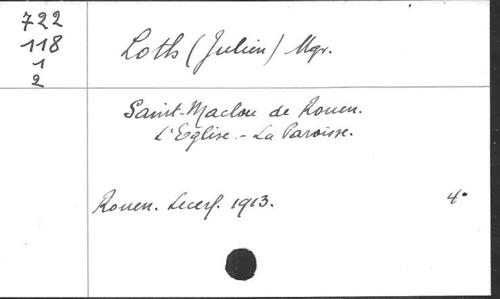 722
118
1
2
Loth (Julien) Mgr.
Saint-Maclou de Rouen.
L'Eglise. - La Paroisse.
Rouen. Lecerf. 1913.
4°